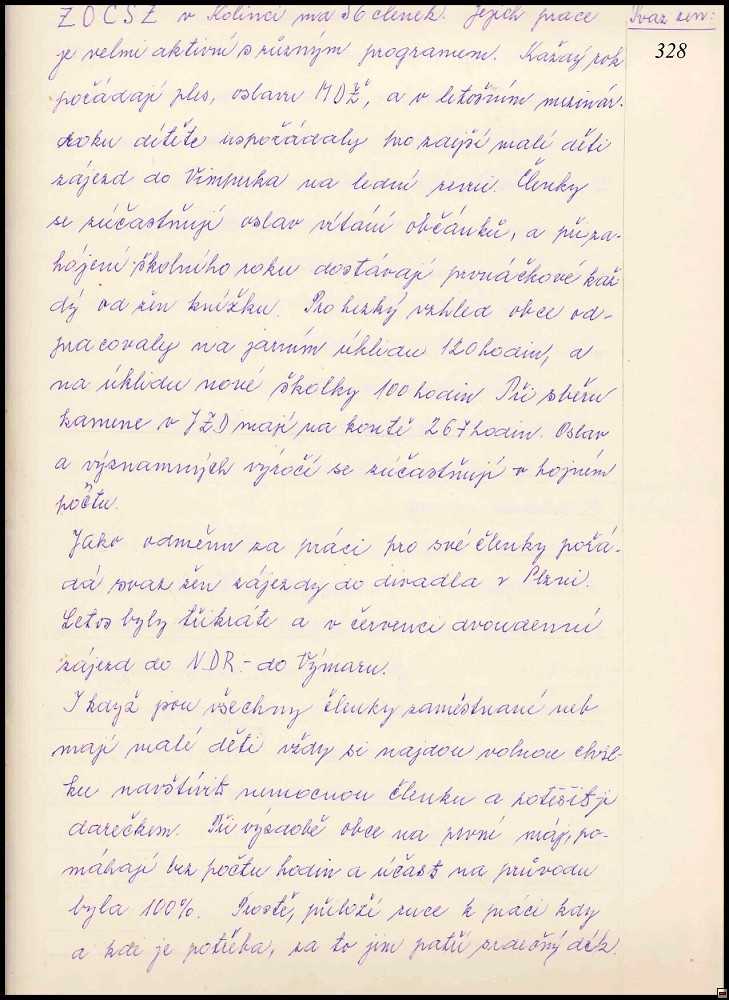 ZO ČSŽ v Kolinci má 56 členek. Jejich práce
Svaz žen:
328
je velmi aktivní s různým programem. Každý rok
pořádají ples, oslavu MDŽ, a v letošním mezinár.
roku dítěte uspořádaly pro zdejší malé děti
zájezd do Vimperka na lední revui. Členky
se zúčastňují oslav vítání občánků, a při za-
hájení školního roku dostávají prvnáčkové kaž
dý od žen knížku. Pro hezký vzhled obce od-
pracovaly na jarním úklidu 120 hodin, a
na úklidu nové školky 100 hodin Při sběru
kamene v JZD mají na kontě 267 hodin. Oslav
a významných výročí se zúčastňují v hojném
počtu.
Jako odměnu za práci pro své členky pořá-
dá svaz žen zájezdy do divadla v Plzni.
Letos byly třikráte a v červenci dvoudenní
zájezd do NDR - do Výmaru.
I když jsou všechny členky zaměstnané neb
mají malé děti vždy si najdou volnou chvil-
ku navštívit nemocnou členku a potěšit ji
darečkem. Při výzdobě obce na první máj, po-
máhají bez počtu hodin a účast na průvodu
byla 100%. Prostě, přiloží ruce k práci kdy
a kde je potřeba, za to jim patří srdečný dík.